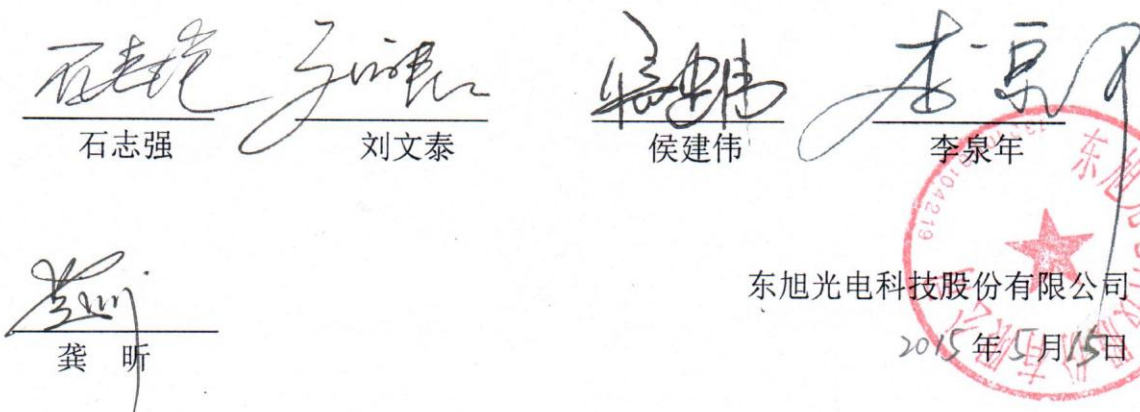 石志强 刘文泰 侯建伟 李泉年
东旭光电科技股份有限公司
龚 昕
2015年5月15日